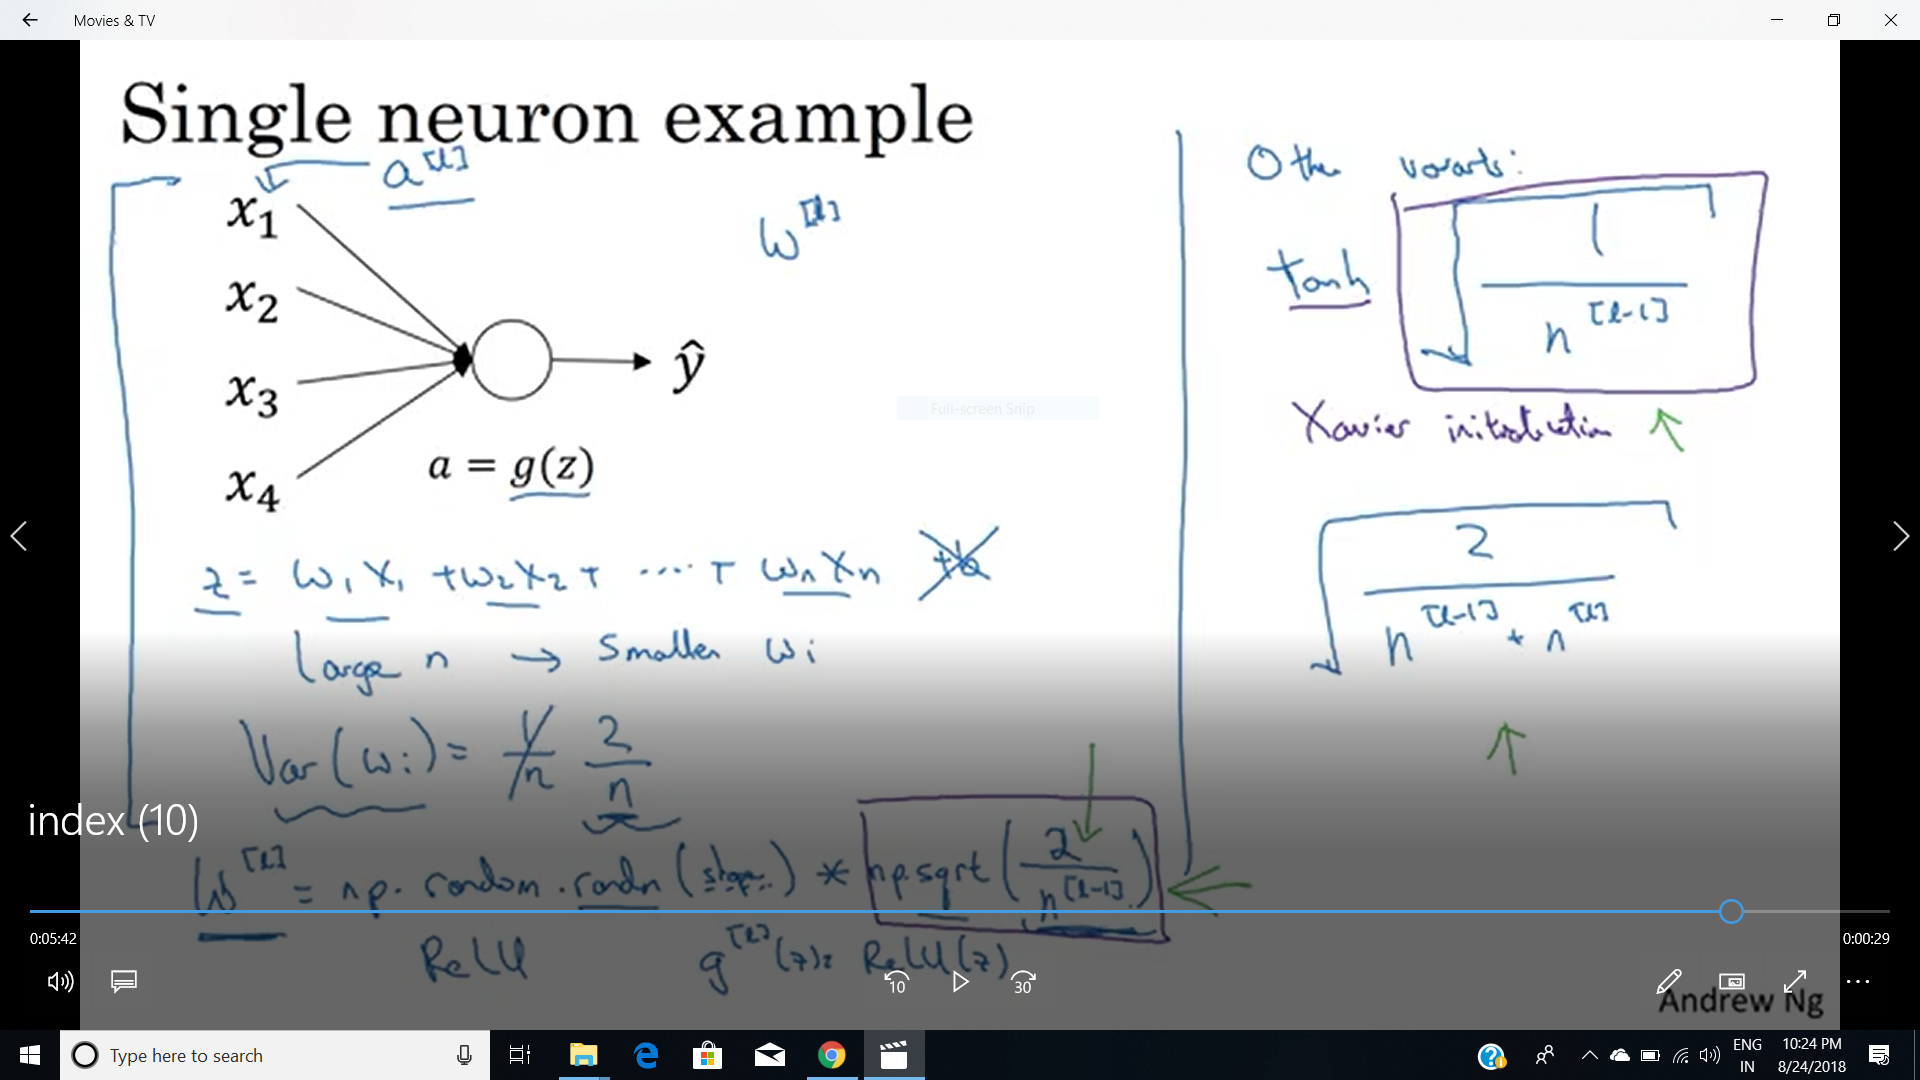 Movies & TV
Single neuron example
a[l]
x1
x2
x3
x4
w[l]
ŷ
a = g(z)
Full-screen Snip
z = w1x1 + w2x2 + .... + wnxn +b
Large n → Smaller wi
Var(wi) = 1/n 2/n
W[l] = np.random.randn(shape) * np.sqrt(2/n[l-1])
ReLU g[l](z) = ReLU(z)
Other variants:
tanh √1/n[l-1]
Xavier initialization ↑
√2/n[l-1] + n[l]
↑
index (10)
0:05:42
0:00:29
10
30
Andrew Ng
Type here to search
ENG
IN
10:24 PM
8/24/2018